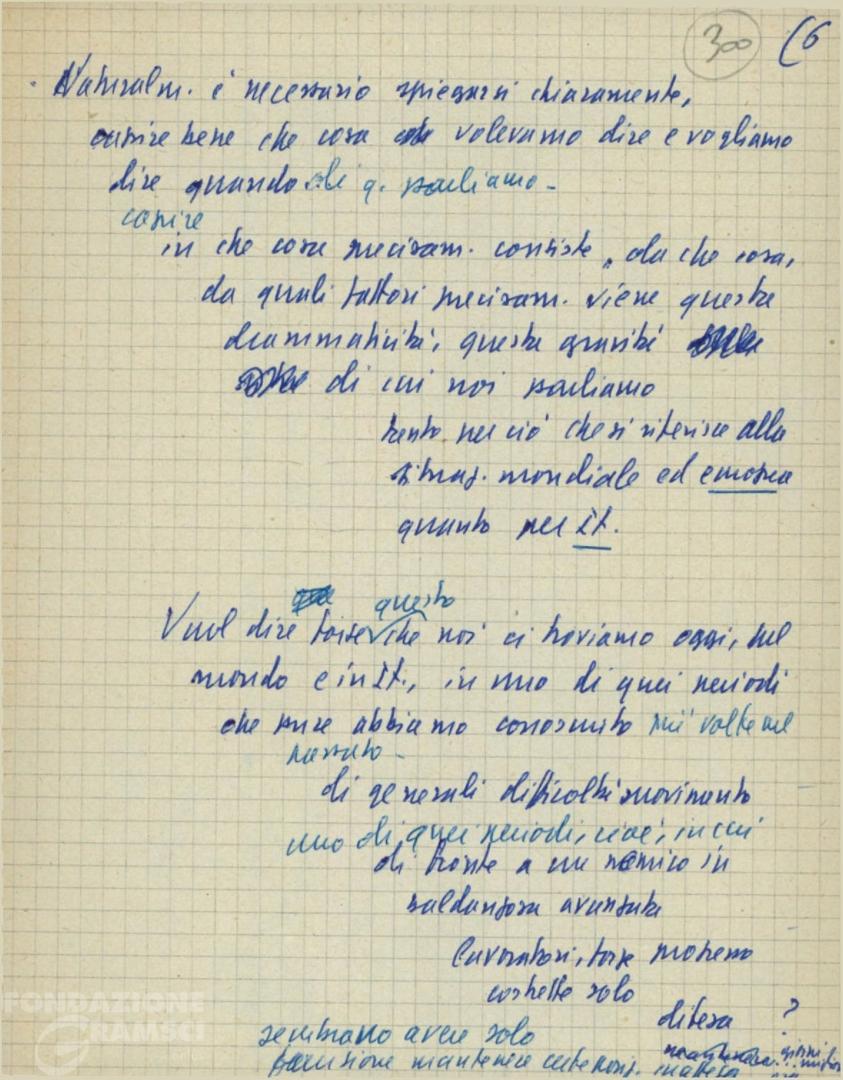 300 (6
Naturalm. è necessario spiegarsi chiaramente,
capire bene che cosa volevamo dire e vogliamo
dire quando di q. parliamo -
capire
in che cosa precisam. consiste, da che cosa,
da quali fattori precisam. viene questa
drammaticità, questa gravità
di cui noi parliamo
tanto per ciò che si riferisce alla
situaz. mondiale ed europea
quanto per It.
questo
Vuol dire forse che noi ci troviamo oggi, nel
mondo e in It., in uno di quei periodi
che pure abbiamo conosciuto più volte nel
passato -
di generali difficoltà movimento
uno di quei periodi, cioè, in cui
di fronte a un nemico in
baldanzosa avanzata
lavoratori, forze progresso
costrette solo
difesa ?
sembrano avere solo
mantenere certe posiz. in attesa